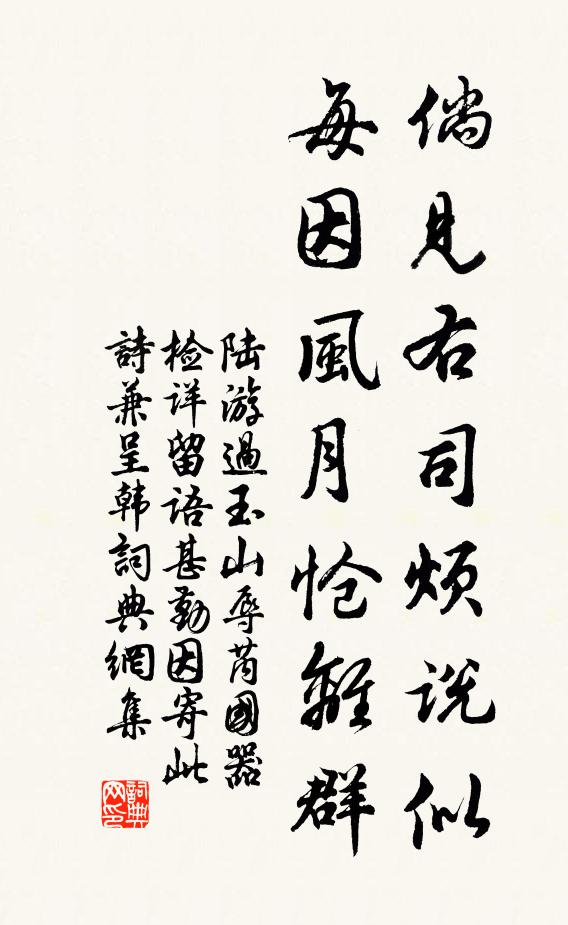 倘見右司煩說似
每因風月怆離群
陆游過玉山辱芮國器
检详留语甚勤因寄此
詩兼呈韩詞典網集
詞典网印